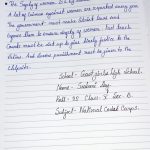 The Safety of women is a by matter
A lot of crimes against women are reported every year.
The government must make strict laws and
enforce them to ensure safety of women. Fast track
Courts must be set up to give timely justice to the
Victims. And severe punishment must be given to the
culprits.
School - Govt. girls high School.
Name -
Roll - 35 Class X Sec B.
Subject - National Cadet Corps.